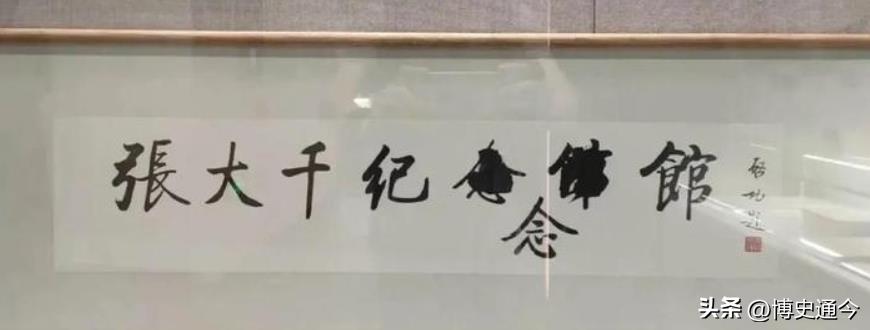 張大千纪念館
啓功題
头条 @博史通今